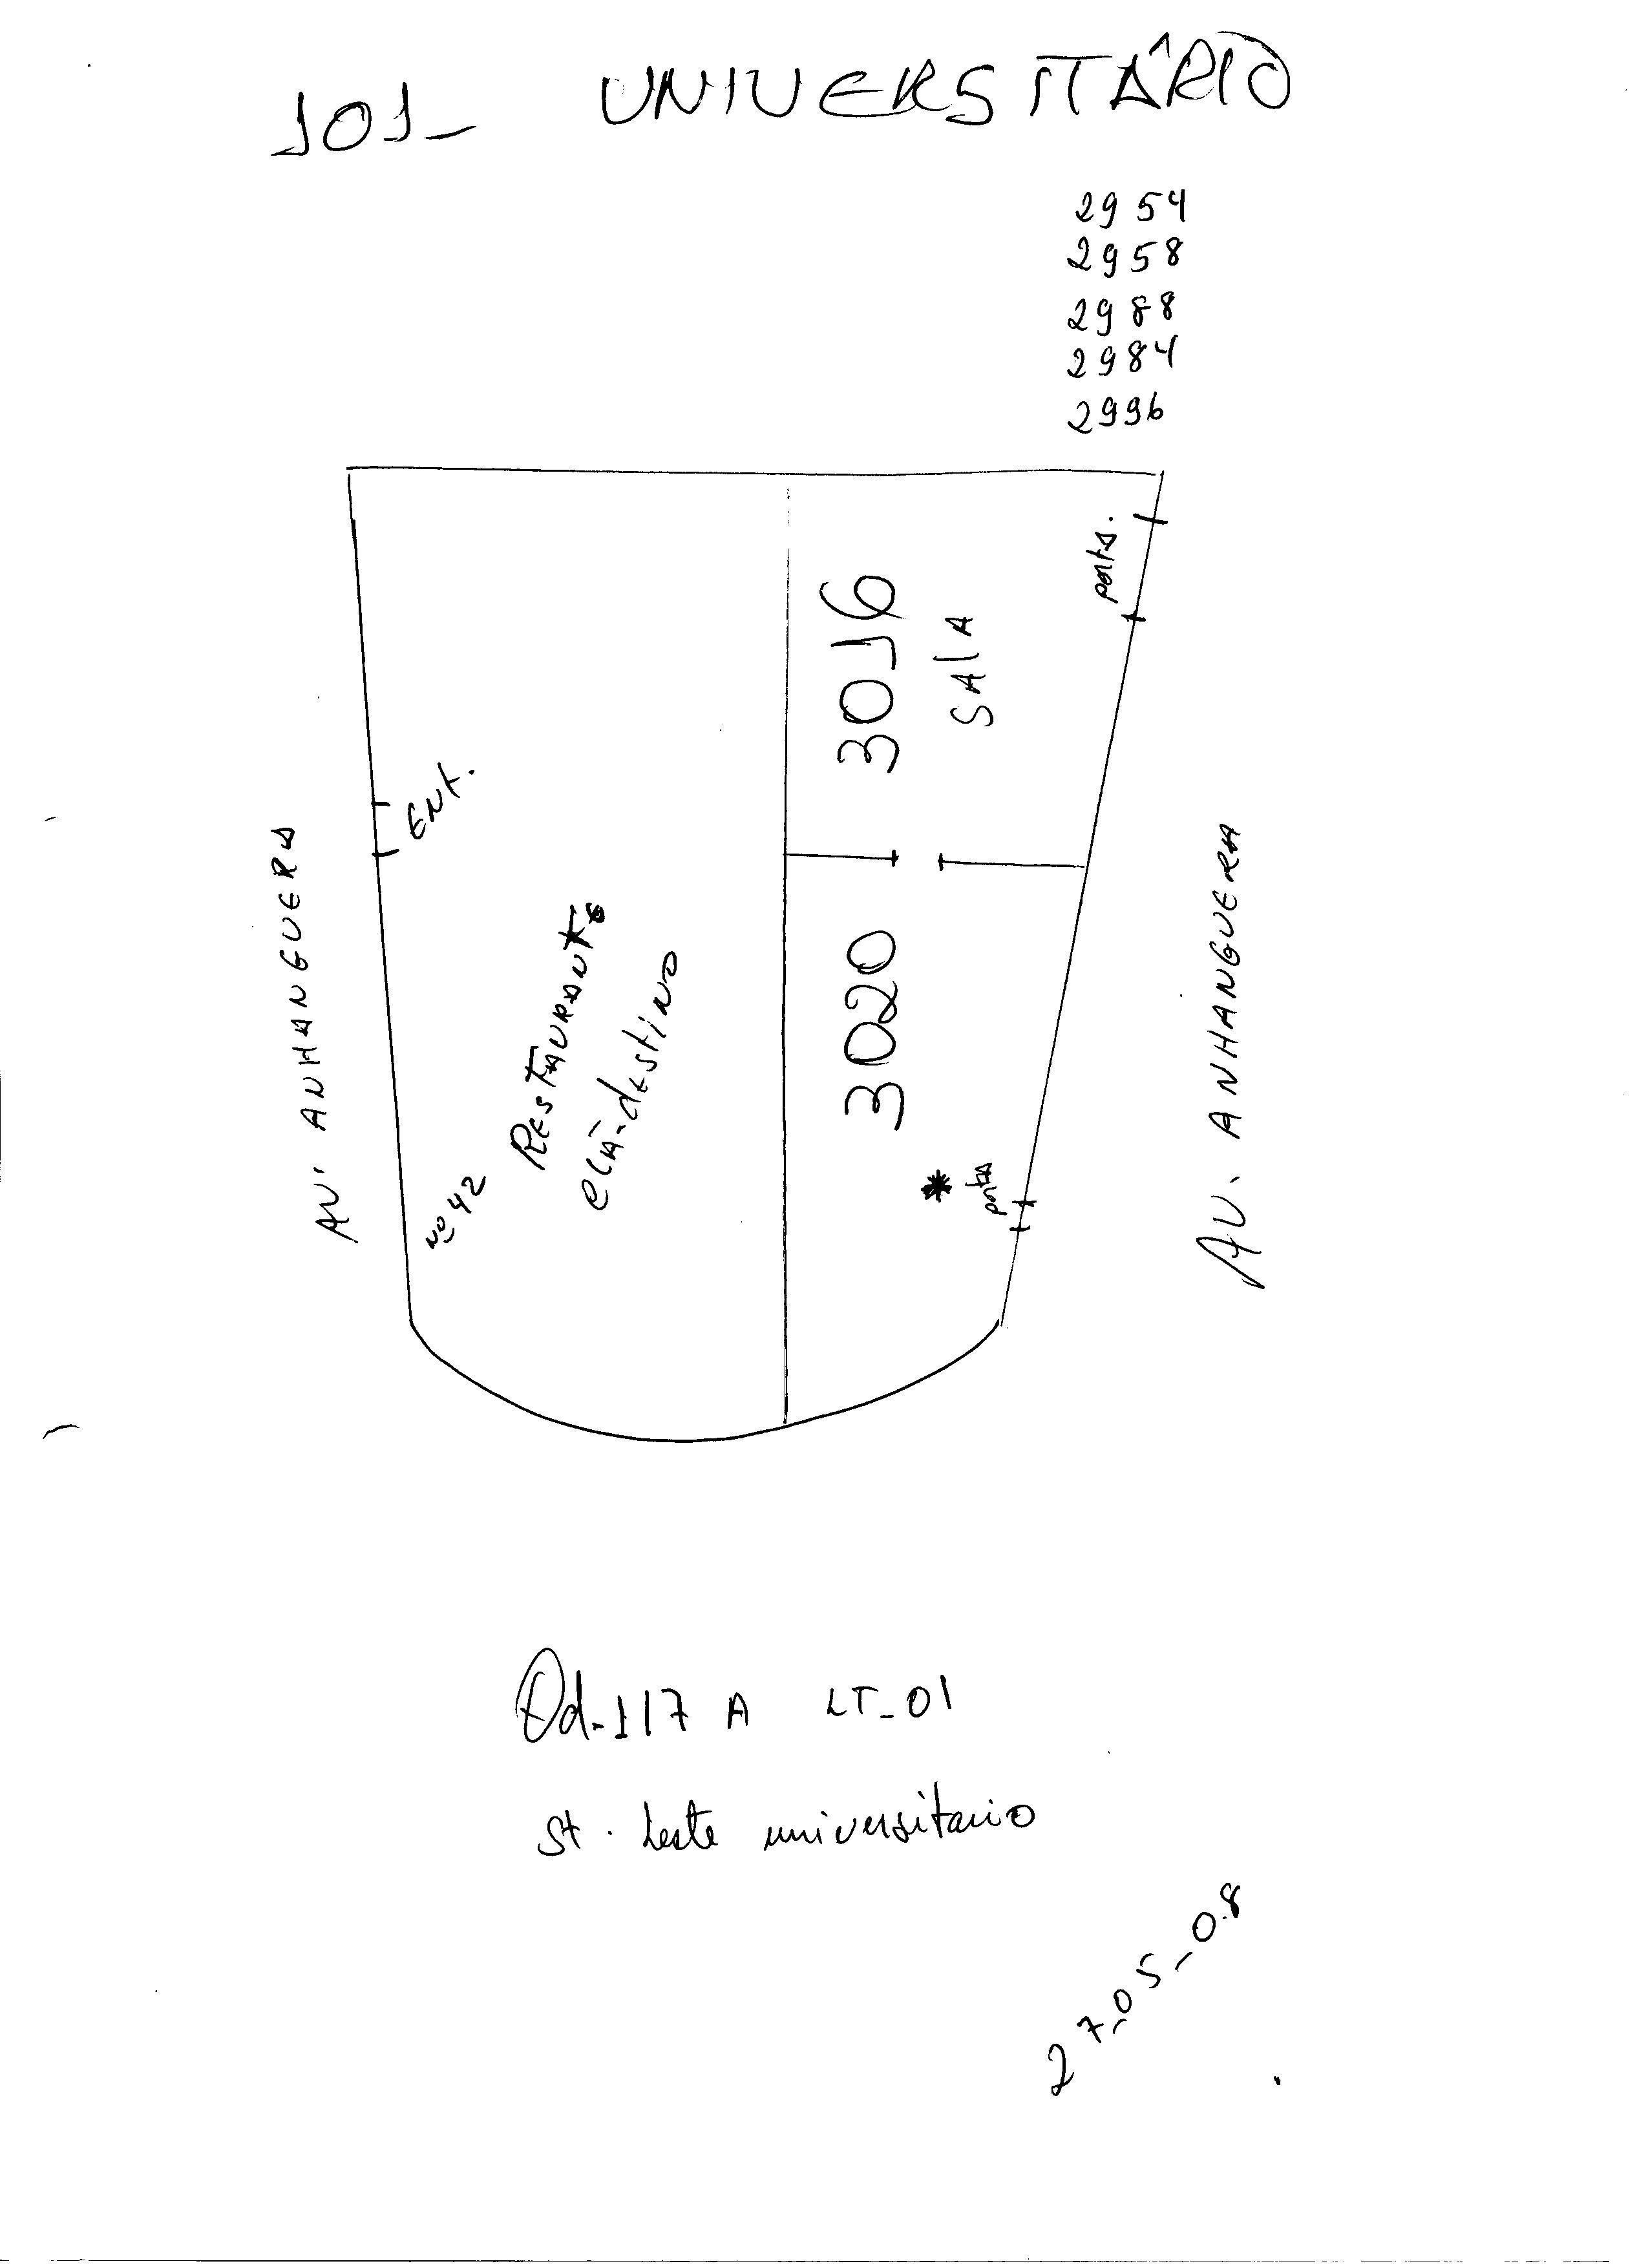 101- UNIVERSITÁRIO
2954
2958
2988
2984
2996
3016
SAlA
porta.
ENt.
AV. ANHANGUERA
RESTAURANTE
clã-dEstino
Nº 42
3020
porta
AV. ANHANGUERA
Qd-117 A LT-01
St. Leste universitario
27-05-08